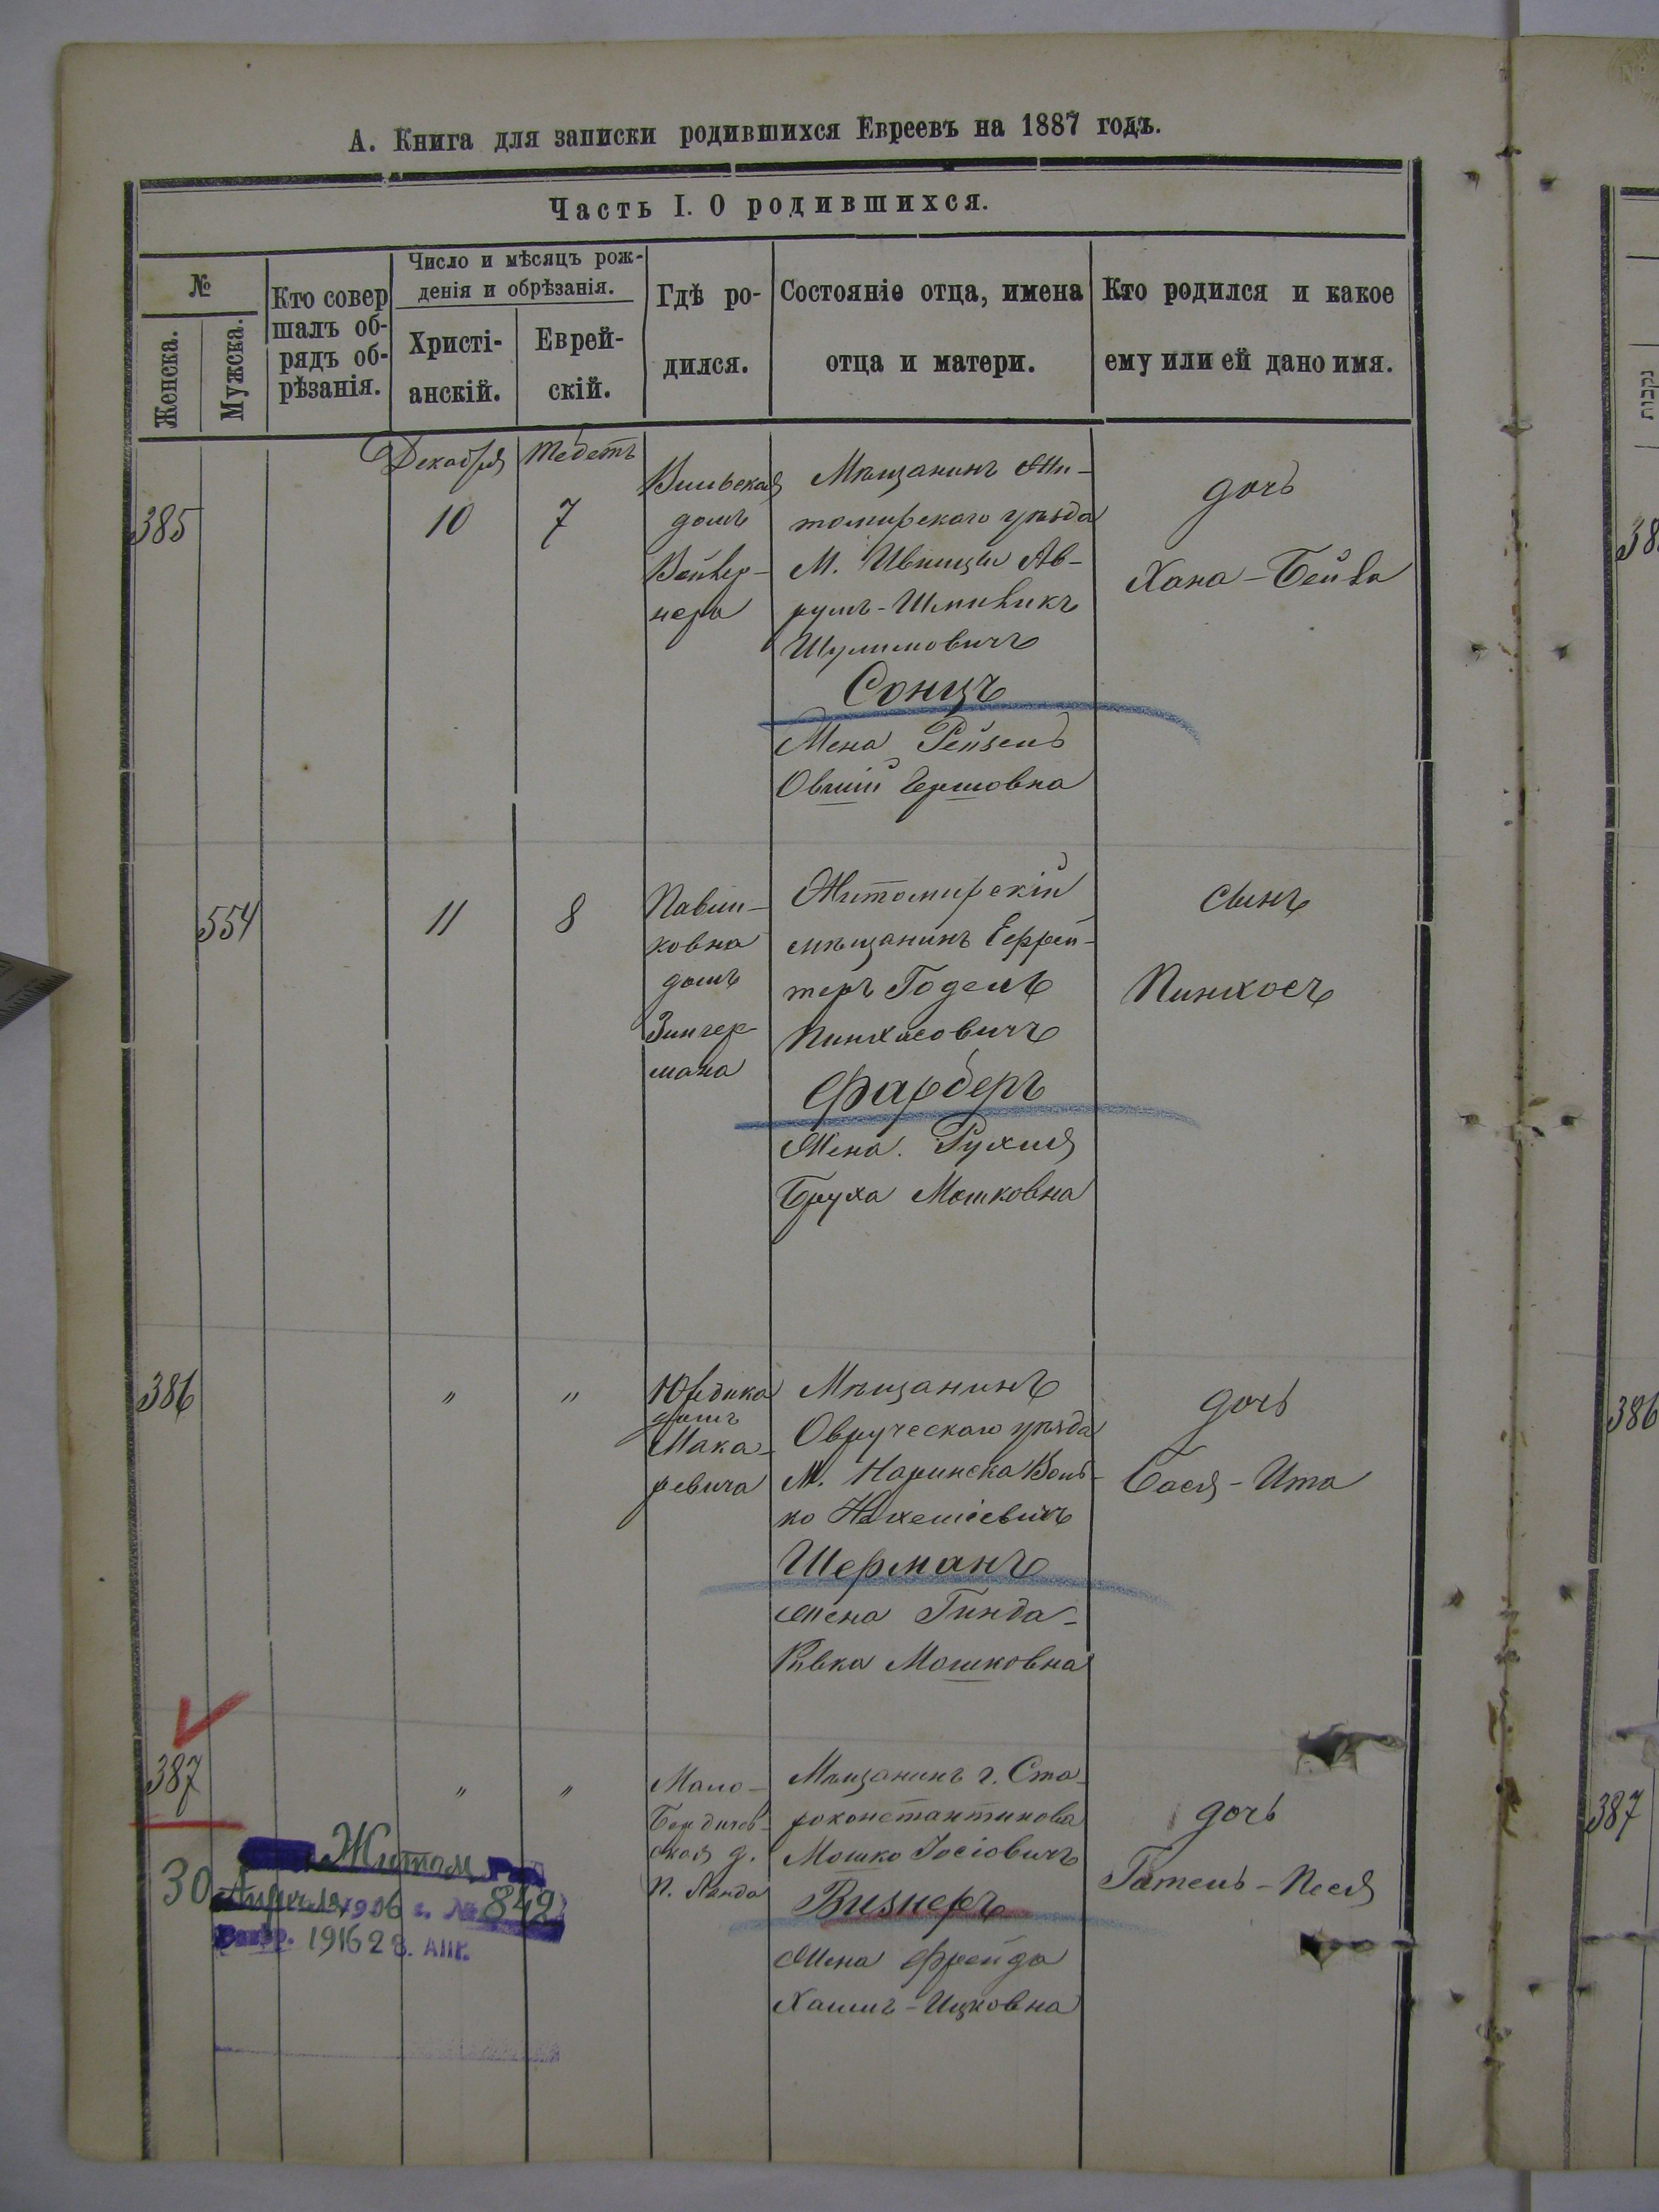 А. Книга для записки родившихся Евреевъ на 1887 годъ.
Часть I. О родившихся.
№
Женска.
Мужска.
Кто совер
шалъ об-
рядъ об-
рѣзанія.
Число и мѣсяцъ рож-
денія и обрѣзанія.
Христі-
анскій.
Еврей-
скій.
Гдѣ ро-
дился.
Состояніе отца, имена
отца и матери.
Кто родился и какое
ему или ей дано имя.
נקבות
Декабря
Тебетъ
385
10
7
Вильская
домъ
Мѣщанинъ Жи-
томирскаго уѣзда
М. Ивницы Ав-
румъ-Шмиликъ
Шулимовичъ
Сонцъ
Жена Рейзель
Овшій Гершовна
дочь
Хана-Бейла
554
11
8
Павли-
ковка
домъ
Зингер-
мана
Житомирскій
мѣщанинъ Ефрей-
теръ Годель
Пинхасовичъ
Фарберъ
Жена Рухля
Бруха Мошковна
сынъ
Пинхосъ
386
"
"
Юридика
домъ
Мака-
ревича
Мѣщанинъ
Овручскаго уѣзда
М. Наринска Воль-
ко
Шерманъ
Жена Гинда-
Ривка Мошковна
дочь
Бася-Ита
386
387
"
"
Мало-
Бердичев-
ская д.
П. Ланда
Мѣщанинъ г. Ста-
роконстантинова
Мошко Іосіовичъ
Визнеръ
Жена Фрейда
Хаимъ-Ицковна
дочь
Гитель-Песя
387
Житом
30 Апрѣля 1906 г. № 842
1916 28. АПР.